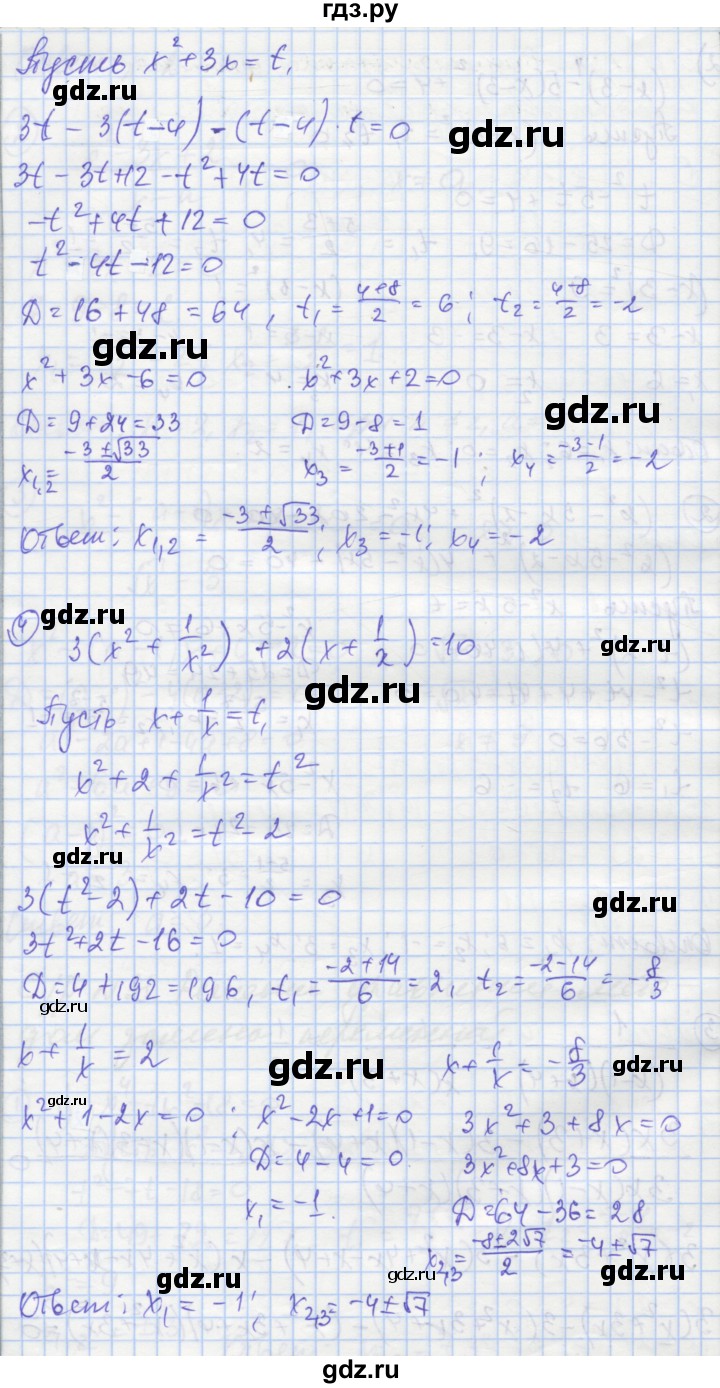 гдз.ру
Пусть x² + 3x = t,
gdz.ru
3t - 3(t-4) - (t-4)·t = 0
gdz.ru
3t - 3t + 12 - t² + 4t = 0
-t² + 4t + 12 = 0
t² - 4t - 12 = 0
D = 16 + 48 = 64, t₁ = (4+8)/2 = 6; t₂ = (4-8)/2 = -2
gdz.ru
x² + 3x - 6 = 0 x² + 3x + 2 = 0
gdz.ru
D = 9 + 24 = 33 D = 9 - 8 = 1
x₁,₂ = (-3 ± √33)/2 x₃ = (-3+1)/2 = -1; x₄ = (-3-1)/2 = -2
Ответ: x₁,₂ = (-3 ± √33)/2; x₃ = -1; x₄ = -2
gdz.ru
4) 3(x² + 1/x²) + 2(x + 1/x) = 10
gdz.ru
gdz.ru
Пусть x + 1/x = t,
x² + 2 + 1/x² = t²
x² + 1/x² = t² - 2
gdz.ru
3(t² - 2) + 2t - 10 = 0
gdz.ru
3t² + 2t - 16 = 0
D = 4 + 192 = 196, t₁ = (-2+14)/6 = 2, t₂ = (-2-14)/6 = -8/3
gdz.ru
x + 1/x = 2 x + 1/x = -8/3
gdz.ru
gdz.ru
x² + 1 - 2x = 0; x² - 2x + 1 = 0 3x² + 3 + 8x = 0
D = 4 - 4 = 0 3x² + 8x + 3 = 0
x₁ = -1. D = 64 - 36 = 28
x₂,₃ = (-8 ± 2√7)/2 = -4 ± √7
gdz.ru gdz.ru gdz.ru
Ответ: x₁ = -1; x₂,₃ = -4 ± √7
gdz.ru